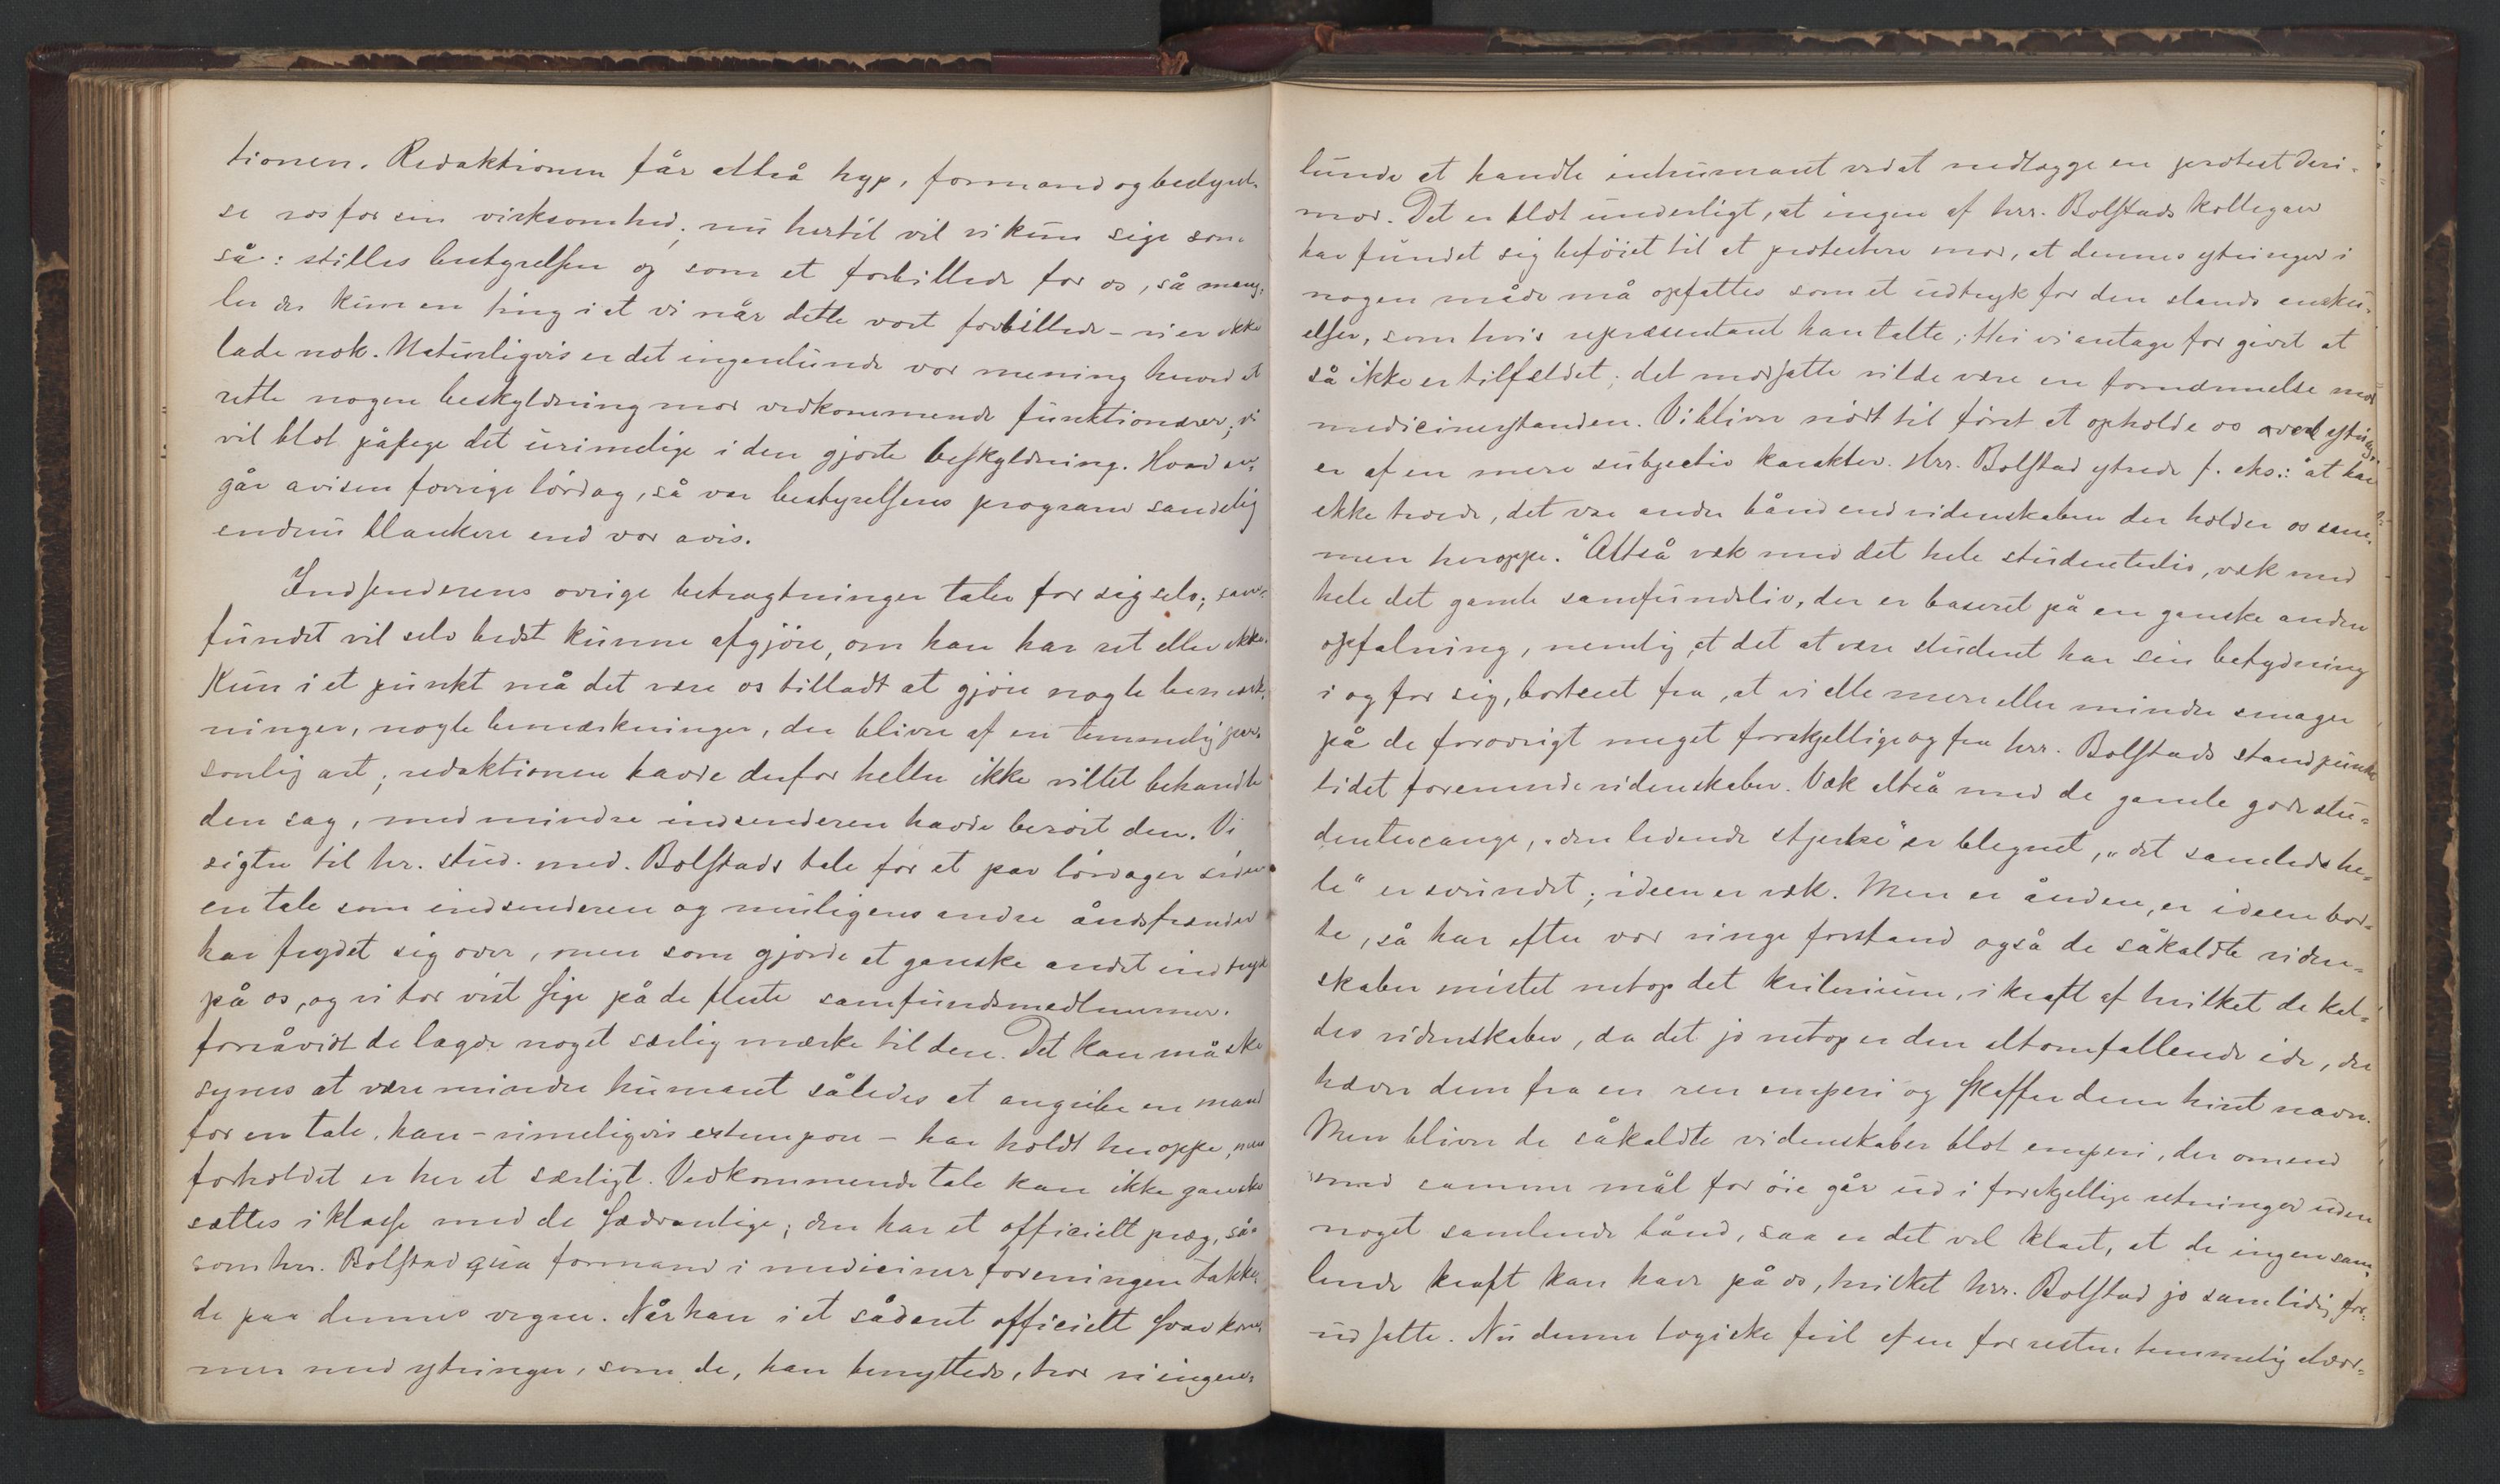 tionen. Redaktionen får altså hyp, formand og bestyrel-
se ros for sin virksomhed; nu hertil vil vi kun sige som
så: stilles bestyrelsen og som et forbillede for os, så mang-
ler der kun en ting i at vi når dette vort forbillede - vi er ikke
lade nok. Naturligvis er det ingenlunde vor mening herved at
rette nogen beskyldning mod vedkommende funktionærer; vi
vil blot påpege det urimelige i den gjorte beskyldning. Hvad an-
går avisen forrige lördag, så var bestyrelsens program sandelig
endnu blankere end vor avis.
Indsenderens övrige betragtninger taler for sig selv; sam-
fundet vil selv bedst kunne afgjöre, om han har ret eller ikke.
Kun i et punkt må det være os tilladt at gjöre nogle bemærk-
ninger, nogle bemærkninger, der bliver af en temmelig per-
sonlig art; redaktionen havde derfor heller ikke villet behandle
den sag, med mindre indsenderen havde berört den. Vi
sigter til hr. stud. med. Bolstads tale for et par lördager siden
en tale som indsenderen og muligens andre åndsfrænder
har frydet sig over, men som gjorde et ganske andet indtryk
på os, og vi tör vist sige på de fleste samfundsmedlemmer.
forsåvidt de lagde noget særlig mærke til den. Det kan måske
synes at være mindre humant således at angribe en mand
for en tale, han - rimeligvis extempore - har holdt heroppe, men
forholdet er her et særligt. Vedkommende tale kan ikke ganske
sættes i klasse med de sædvanlige; den har et officielt præg, så-
som hr. Bolstad qua formand i medicinerforeningen takke-
de paa dennes vegne. Når han i et sådant officielt svar kom-
mer med ytringer, som de, han benyttede, tror vi ingen-
lunde at handle inhumant ved at nedlægge en protest deri-
mod. Det er blot underligt, at ingen af hrr. Bolstads kolleger
har fundet sig beföiet til at protestere mod, at dennes ytringer i
nogen måde må opfattes som et udtryk for den stands anskü-
elser, som hvis repræsentant han talte; thi vi antage for givet at
så ikke er tilfældet; det modsatte vilde være en fornærmelse mod
medicinerstanden. Vi bliver nödt til först at opholde os ved ytring-
er af en mere subjectiv karakter. Hrr. Bolstad ytrede f. eks.: "at han
ikke troede, det var andre bånd end videnskaben der holder os sam-
men heroppe." Altså væk med det hele studenterliv, væk med
hele det gamle samfundsliv, der er baseret på en ganske anden
opfatning, nemlig, at det at være student har sin betydning
i og for sig, bortseet fra, at vi alle mere eller mindre smager
på de forövrigt meget forskjellige og fra hrr. Bolstads standpunkt
lidet forenende videnskaber. Væk altså med de gamle gode stu-
dentersange, "den ledende stjerne" er blegnet, "det samlede he-
le" er svundet; ideen er væk. Men er ånden, er ideen bor-
te, så har efter vor ringe forstand også de såkaldte viden-
skaber mistet netop det kriterium, i kraft af hvilket de kal-
des videnskaber, da det jo netop er den altomfattende ide, der
hæver dem fra en ren emperi og skaffer dem hint navn.
Men bliver de såkaldte videnskaber blot emperi, der omend
med samme mål for öie går ud i forskjellige retninger uden
noget samlende bånd, saa er det vel klart, at de ingen sam-
lende kraft kan have på os, hvilket hrr. Bolstad jo samtidig for-
udsatte. Nu denne logiske feil af en forresten temmelig alvor-